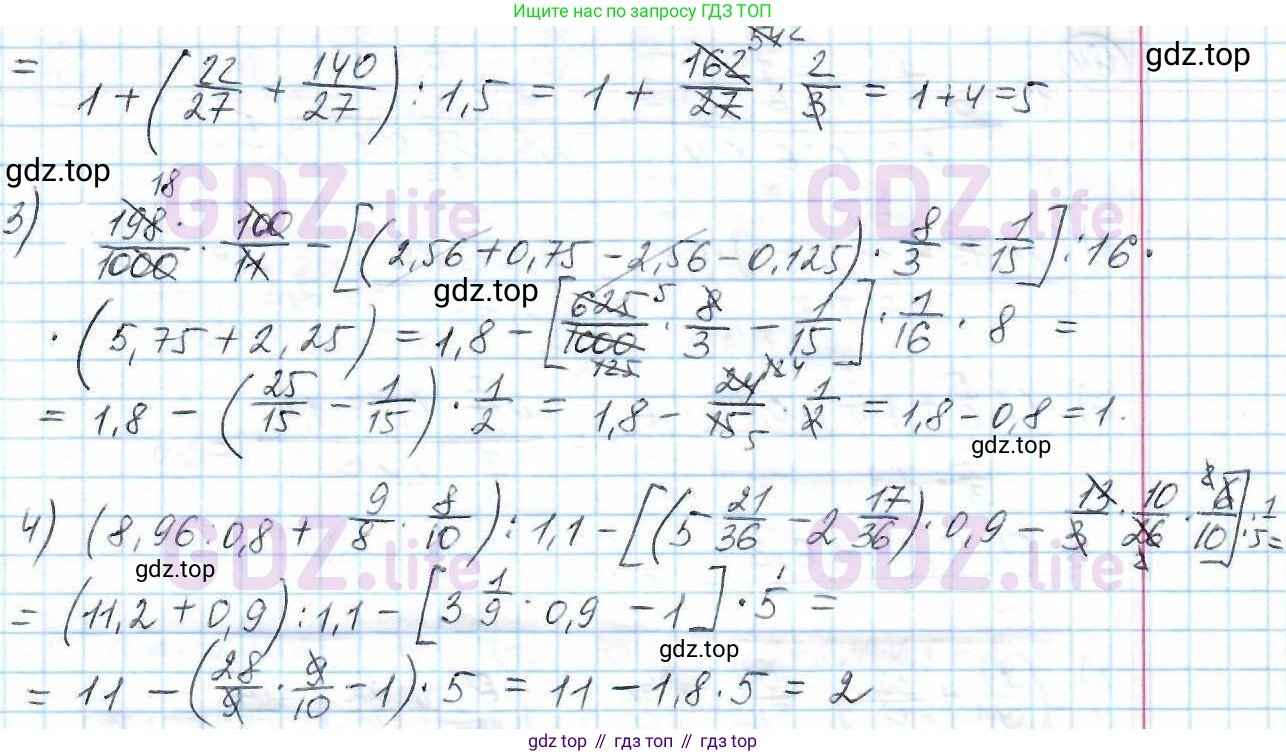 Ищите нас по запросу ГДЗ ТОП
= 1 + (22/27 + 140/27) : 1,5 = 1 + 162/27 54 2 · 2/3 = 1 + 4 = 5
gdz.top
gdz.top
GDZ.life GDZ.life
3) 198/1000 18 · 100/11 − [(2,56 + 0,75 − 2,56 − 0,125) · 8/3 − 1/15] : 16 ·
gdz.top
· (5,75 + 2,25) = 1,8 − [625/1000 5 125 · 8/3 − 1/15] · 1/16 · 8 =
= 1,8 − (25/15 − 1/15) · 1/2 = 1,8 − 24/15 5 · 1/2 = 1,8 − 0,8 = 1.
gdz.top
4) (8,96 : 0,8 + 9/8 · 8/10) : 1,1 − [(5 21/36 − 2 17/36) · 0,9 − 13/3 · 10/26 2 · 6/10] : 1/5 =
GDZ.life GDZ.life
gdz.top
= (11,2 + 0,9) : 1,1 − [3 1/9 · 0,9 − 1] · 5 =
gdz.top
= 11 − (28/9 · 9/10 − 1) · 5 = 11 − 1,8 · 5 = 2
gdz top // гдз топ // gdz top